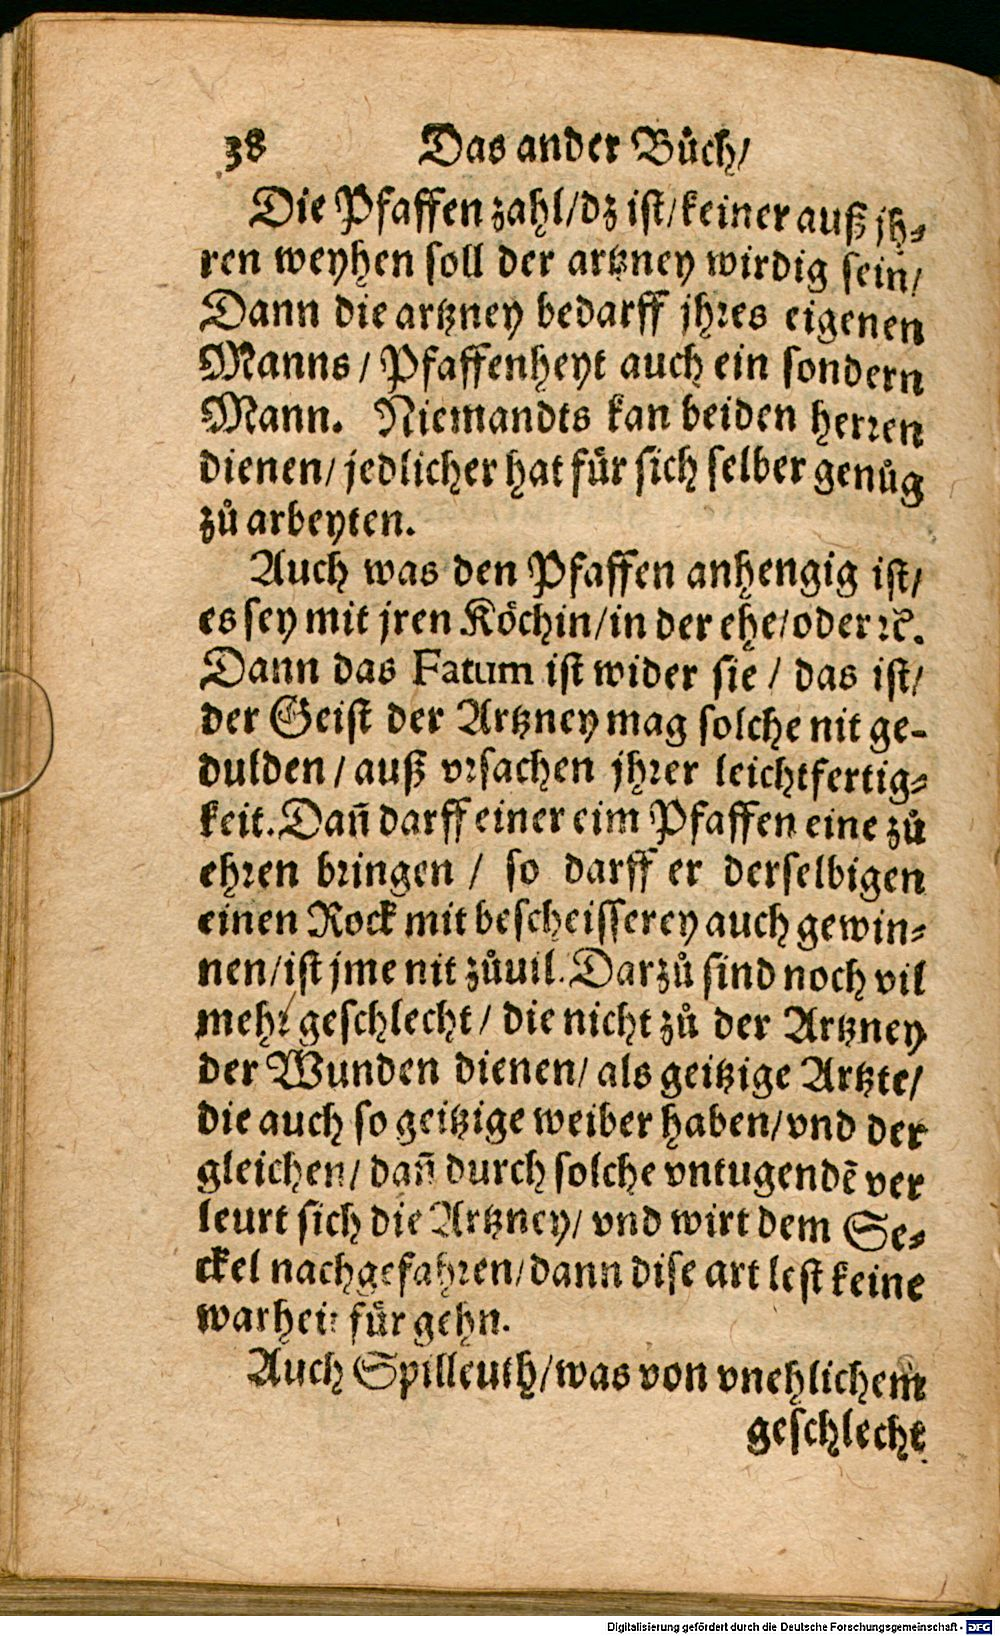 38 Das ander Bůch/
Die Pfaffen zahl/dz ist/keiner auß jh⸗
ren weyhen soll der artzney wirdig sein/
Dann die artzney bedarff jhres eigenen
Manns/Pfaffenheyt auch ein sondern
Mann. Niemandts kan beiden herren
dienen/jedlicher hat für sich selber genůg
zů arbeyten.
Auch was den Pfaffen anhengig ist/
es sey mit jren Köchin/in der ehe/oder ꝛc̃.
Dann das Fatum ist wider sie/das ist/
der Geist der Artzney mag solche nit ge-
dulden/auß vrsachen jhrer leichtfertig⸗
keit. Dañ darff einer eim Pfaffen eine zů
ehren bringen/so darff er derselbigen
einen Rock mit bescheisserey auch gewin⸗
nen/ist jme nit zůuil. Darzů sind noch vil
mehr geschlecht/die nicht zů der Artzney
der Wunden dienen/als geitzige Artzte/
die auch so geitzige weiber haben/vnd der
gleichen/dañ durch solche vntugendẽ ver
leurt sich die Artzney/vnd wirt dem Se⸗
ckel nachgefahren/dann dise art lest keine
warheit für gehn.
Auch Spilleuth/was von vnehlichem
geschlecht
Digitalisierung gefördert durch die Deutsche Forschungsgemeinschaft - DFG